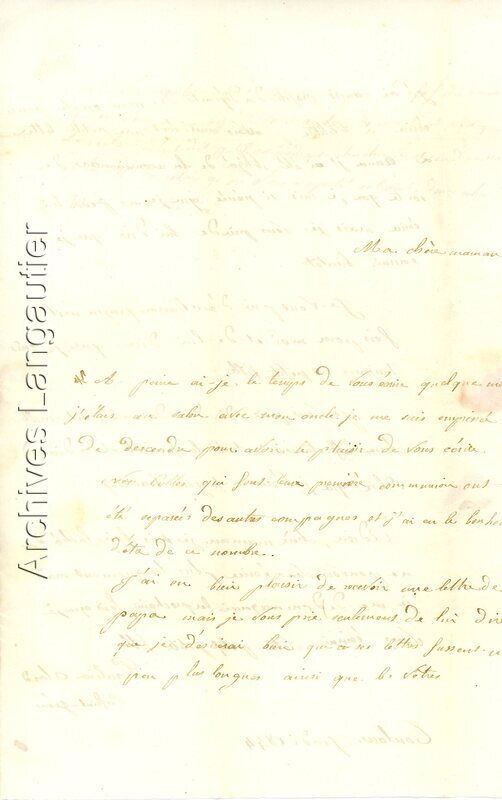 Ma chère maman
A peine ai-je le temps de vous écrire quelque
j'étais au salon avec mon oncle je me suis empressé
de descendre pour avoir le plaisir de vous écrire.
qui font leur première communion ont
été séparés des autres compagnes et j'ai eu le bonheu
d'être de ce nombre.
J'ai eu bien plaisir de recevoir une lettre de
papa mais je vous prie seulement de lui dire
que je désirerai bien que ses lettres fussent
peu plus longues ainsi que les vôtres
Archives Langautier